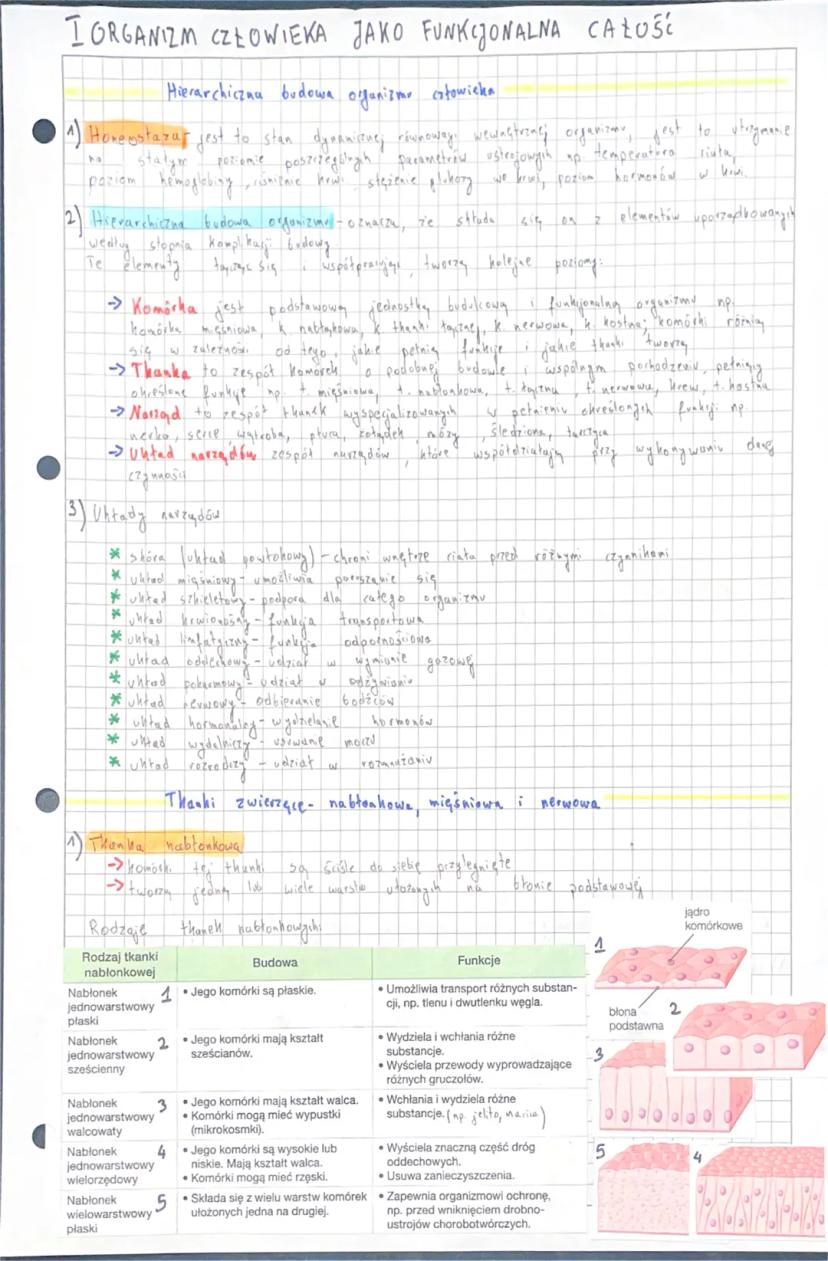 I ORGANIZM CZŁOWIEKA JAKO FUNKCJONALNA CAŁOŚĆ
Hierarchiczna budowa organizmu człowieka
1) Homeostaza - jest to stan dynamicznej równowagi wewnętrznej organizmu, jest to utrzymanie
na stałym poziomie poszczególnych parametrów ustrojowych np. temperatura ciała,
poziom hemoglobiny, ciśnienie krwi, stężenie glukozy we krwi, poziom hormonów w krwi.
2) Hierarchiczna budowa organizmu - oznacza, że składa się on z elementów uporządkowanych
według stopnia komplikacji budowy.
Te elementy łącząc się i współpracując, tworzą kolejne poziomy:
→ Komórka jest podstawową jednostką budulcową i funkcjonalną organizmu np.
komórka mięśniowa, k nabłonkowa, k tkanki łącznej, k. nerwowa, k. kostna; komórki różnią
się w zależności od tego, jakie pełnią funkcje i jakie tkanki tworzą
→ Tkanka to zespół komórek o podobnej budowie i wspólnym pochodzeniu, pełniący
określone funkcje np. t. mięśniowa, t. nabłonkowa, t. łączna, t. nerwowa, krew, t. kostna
→ Narząd to zespół tkanek wyspecjalizowanych w pełnieniu określonych funkcji np.
nerka, serce, wątroba, płuca, żołądek, mózg, śledziona, tarczyca
→ Układ narządów zespół narządów, które współdziałają przy wykonywaniu danej
czynności
3) Układy narządów
* skóra (układ powłokowy) - chroni wnętrze ciała przed różnymi czynnikami
* układ mięśniowy - umożliwia poruszanie się
* układ szkieletowy - podpora dla całego organizmu
* układ krwionośny - funkcja transportowa
* układ limfatyczny - funkcja odpornościowa
* układ oddechowy - udział w wymianie gazowej
* układ pokarmowy - udział w odżywianiu
* układ nerwowy - odbieranie bodźców
* układ hormonalny - wydzielanie hormonów
* układ wydalniczy - usuwanie moczu
* układ rozrodczy - udział w rozmnażaniu
Tkanki zwierzęce - nabłonkowa, mięśniowa i nerwowa
1) Tkanka nabłonkowa
→ komórki tej tkanki są ściśle do siebie przylegnięte
→ tworzą jedną lub wiele warstw ułożonych na błonie podstawowej
Rodzaje tkanek nabłonkowych:
Rodzaj tkanki nabłonkowej
Budowa
Funkcje
Nabłonek jednowarstwowy płaski 1
• Jego komórki są płaskie.
• Umożliwia transport różnych substan-
cji, np. tlenu i dwutlenku węgla.
Nabłonek jednowarstwowy sześcienny 2
• Jego komórki mają kształt
sześcianów.
• Wydziela i wchłania różne
substancje.
• Wyściela przewody wyprowadzające
różnych gruczołów.
Nabłonek jednowarstwowy walcowaty 3
• Jego komórki mają kształt walca.
• Komórki mogą mieć wypustki
(mikrokosmki).
• Wchłania i wydziela różne
substancje. (np. jelito,
Nabłonek jednowarstwowy wielorzędowy 4
• Jego komórki są wysokie lub
niskie. Mają kształt walca.
• Komórki mogą mieć rzęski.
• Wyściela znaczną część dróg
oddechowych.
• Usuwa zanieczyszczenia.
Nabłonek wielowarstwowy płaski 5
• Składa się z wielu warstw komórek
ułożonych jedna na drugiej.
• Zapewnia organizmowi ochronę,
np. przed wniknięciem drobno-
ustrojów chorobotwórczych.
jądro
komórkowe
1
błona
podstawna
2
3
5
4